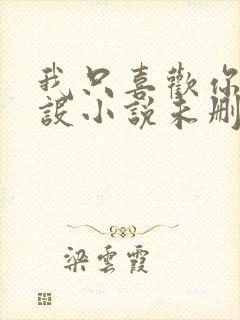 我只喜歡你
設小說未刪
梁雲霞